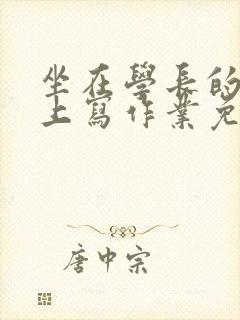 坐在學長的
上寫作業免
唐中宗